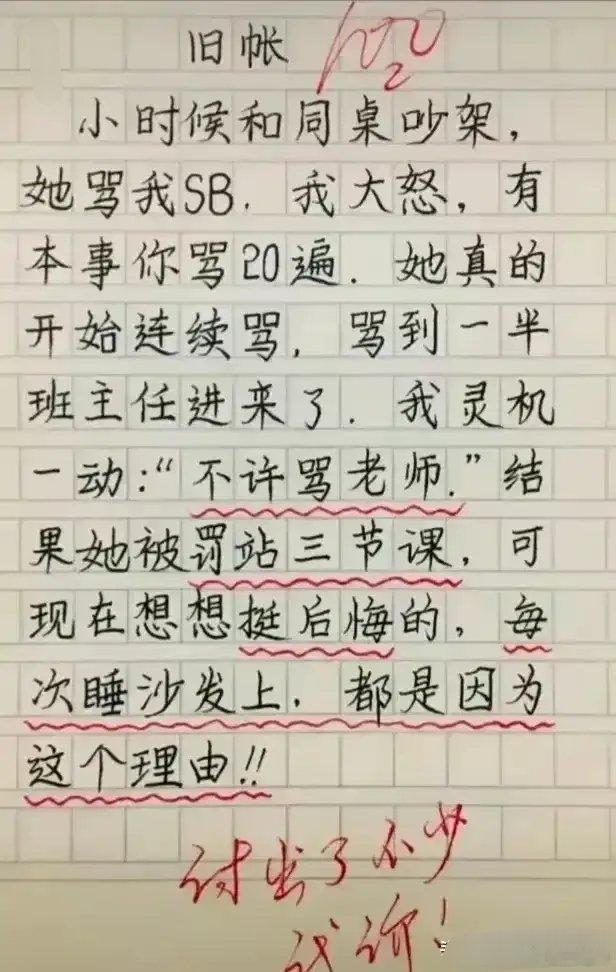 旧帐
100
小时候和同桌吵架，
她骂我SB. 我大怒，有
本事你骂20遍. 她真的
开始连续骂, 骂到一半
班主任进来了. 我灵机
一动:“不许骂老师.”结
果她被罚站三节课, 可
现在想想挺后悔的, 每
次睡沙发上, 都是因为
这个理由!!
付出了不少
代价!